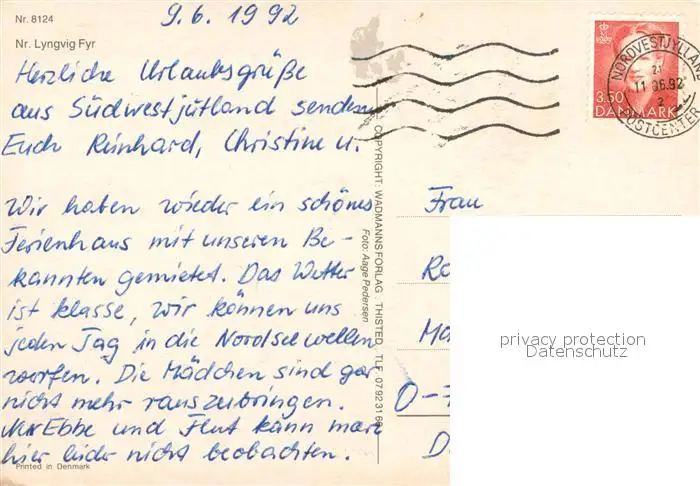 Nr. 8124
Nr. Lyngvig Fyr
9.6.1992
Herzliche Urlaubsgrüße
aus Südwestjütland senden
Euch Reinhard, Christine u.
Wir haben wieder ein schönes
Ferienhaus mit unseren Be-
kannten gemietet. Das Wetter
ist klasse, wir können uns
jeden Tag in die Nordseewellen
werfen. Die Mädchen sind gar
nicht mehr rauszubringen.
Nur Ebbe und Flut kann man
hier leider nicht beobachten.
Printed in Denmark
COPYRIGHT: WADMANNS FORLAG THISTED, TLF. 07 92 31 66
Foto: Aage Pedersen
3.50
DANMARK
NORDVESTJYLLAN
21
11.06.92
2
POSTCENTER
Frau
Ro
Ma
O-7
D
privacy protection
Datenschutz